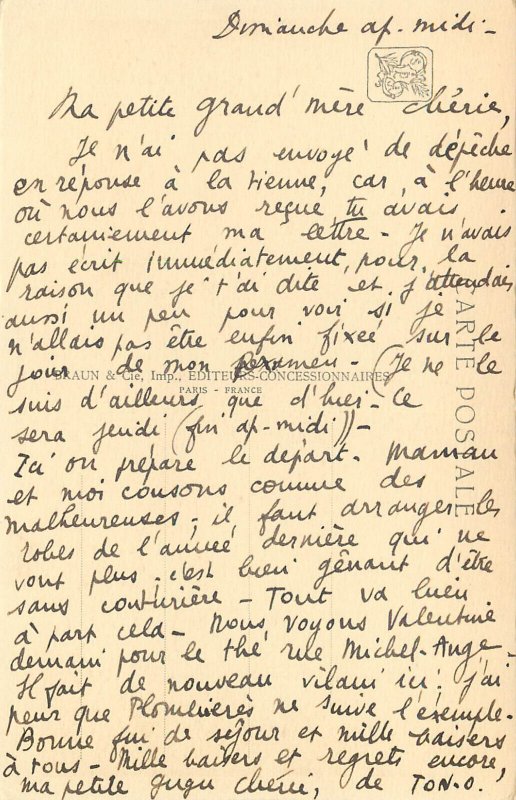 Dimanche ap. midi -
Ma petite grand'mère chérie,
Je n'ai pas envoyé de dépêche
en réponse à la tienne, car, à l'heure
où nous l'avons reçue, tu avais
certainement ma lettre - Je n'avais
pas écrit immédiatement, pour la
raison que je t'ai dite et j'attendais
aussi un peu pour voir si je
n'allais pas être enfin fixée sur le
jour de mon examen - (Je ne le
BRAUN & Cie, Imp., EDITEURS-CONCESSIONNAIRES
PARIS - FRANCE
CARTE POSTALE
suis d'ailleurs que d'hier - Ce
sera jeudi (fin ap-midi)) -
Ici on prépare le départ. Maman
et moi cousons comme des
malheureuses ; il faut arranger les
robes de l'année dernière qui ne
vont plus ; c'est bien gênant d'être
sans couturière - Tout va bien
à part cela - Nous voyons Valentine
demain pour le thé rue Michel-Ange -
Il fait de nouveau vilain ici ; j'ai
peur que Plombières ne suive l'exemple -
Bonne fin de séjour et mille baisers
à tous - Mille baisers et regrets encore,
ma petite gugu chérie, de TON-O.